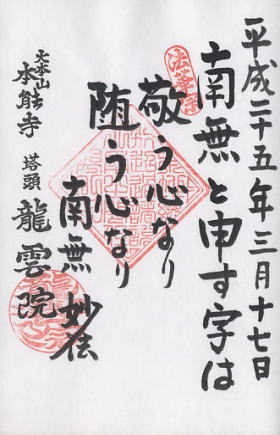 平成二十五年三月十七日
南無と申す字は
敬う心なり
随う心なり
南無妙法
大本山
本能寺
塔頭
龍雲院